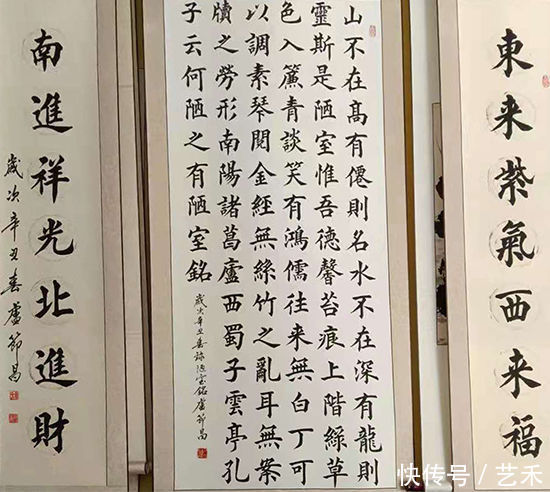 東来紫氣西来福
山不在髙有僊則名水不在深有龍則
靈斯是陋室惟吾德馨苔痕上階緑草
色入簾青談笑有鴻儒往来無白丁可
以調素琴閲金經無絲竹之亂耳無案
牘之勞形南陽諸葛廬西蜀子雲亭孔
子云何陋之有陋室銘
歲次辛丑春録陋室銘盧節昌
南進祥光北進財
歲次辛丑春盧節昌
快传号 / 艺禾